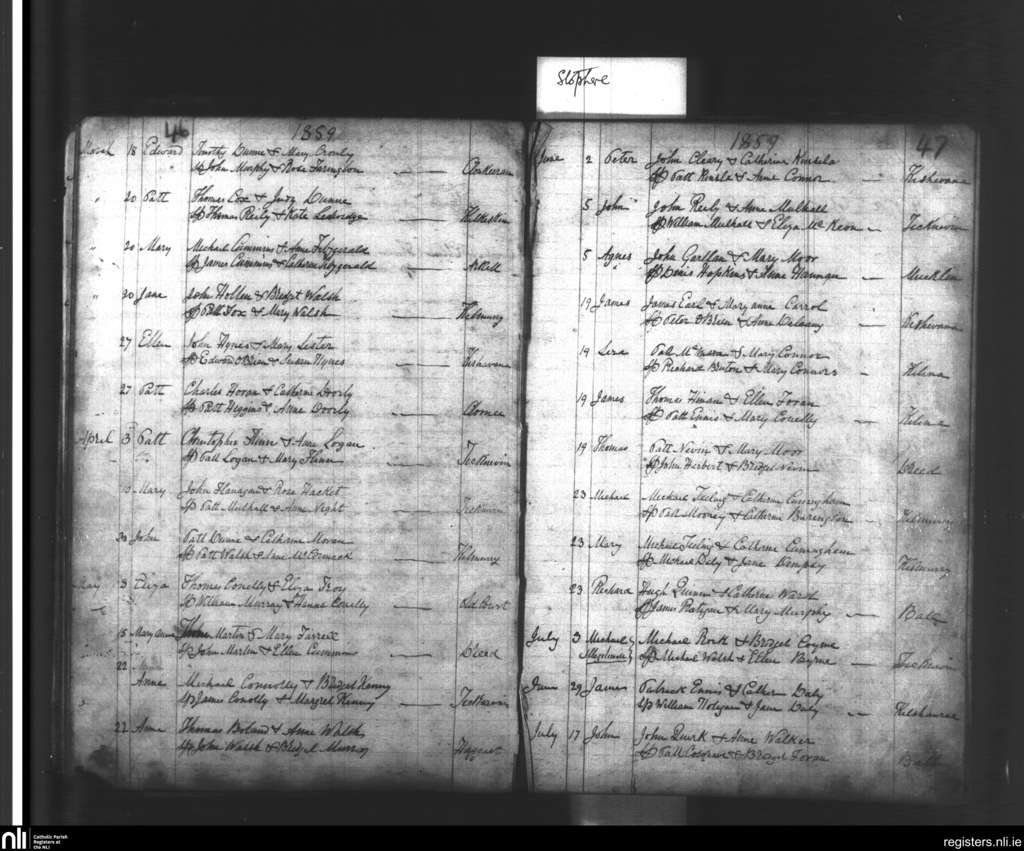 Stop here
46
1859
March 18 Edward Timothy Dunne & Mary Cromly
Sp John Murphy & Rose Farington
" 20 Patt Thomas Cox & Judy Dunne
Sp Thomas Reily & Kate
" 20 Mary Michael Cummins & Anne Fitzgerald
Sp James Cummins & Catherine Fitzgerald
" 20 Jane John Hollen & Bridget Walsh
Sp Patt Fox & Mary Walsh Kilmurry
27 Ellen John Hynes & Mary Lester
Sp Edward O'Brien & Susan Hynes
27 Patt Charles Horan & Catherine Doorly
Sp Patt Higgins & Anne Doorly
April 3 Patt Christopher Flinn & Anne Logan
Sp Patt Logan & Mary Flinn Ticknevin
Mary John Flanagan & Rose Hacket
Sp Patt Mulhall & Anne Ticknevin
30 John Patt Dunne & Cathrine Moran
Sp Patt Walsh & Jane McCormack Kilmurry
May 3 Eliza Thomas Conelly & Eliza Troy
Sp William Murray & Hanna Conelly
15 Mary anne Martin & Mary Tirrell
Sp John Martin & Ellen Cummins Dreed
22
Anne Michael Connolly & Bridget Kenny
Sp James Conolly & Margret Kenny Ticknevin
22 Anne Thomas Boland & Anne Walsh
Sp John Walsh & Bridget Murray
47
1859
June 2 Peter John Cleary & Catherine Kinsela
Sp Patt & Anne Connor
5 John John Reily & Anne Mulhall
Sp William Mulhall & Eliza McKeon Ticknevin
5 Agnes John & Mary Moor
Sp Denis Hopkins & Anne Hannan
19 James James Earl & Mary anne Carrol
Sp Peter O'Brien & Anne Delaney
19 Liza Patt & Mary Connor
Sp Richard & Mary Connors Kilina
19 James Thomas & Ellen Foran
Sp Patt Ennis & Mary Conelly Kilina
19 Thomas Patt Nevin & Mary Moor
Sp John Herbert & Bridget Nevin Dreed
23 Michael Michael Feeling & Catherine Cuningham
Sp Patt Mooney & Catherine Kilmurry
23 Mary Michael Feeling & Catherine Cuningham
Sp Michael Daly & Jane Dempsy Kilmurry
23 Richard Hugh Quinn & Catherine Walsh
Sp James & Mary Murphy
July 3 Michael Michael Rock & Bridget Coyne
Illegitimate Sp Michael Walsh & Ellen Byrne Ticknevin
June 29 James Patrick Ennis & Cathern Daly
Sp William & Jane Daly
July 17 John John Quirk & Anne Walker
Sp Patt Cosgrave & Bridget Foran
nli
Catholic Parish
Registers at
the NLI
registers.nli.ie